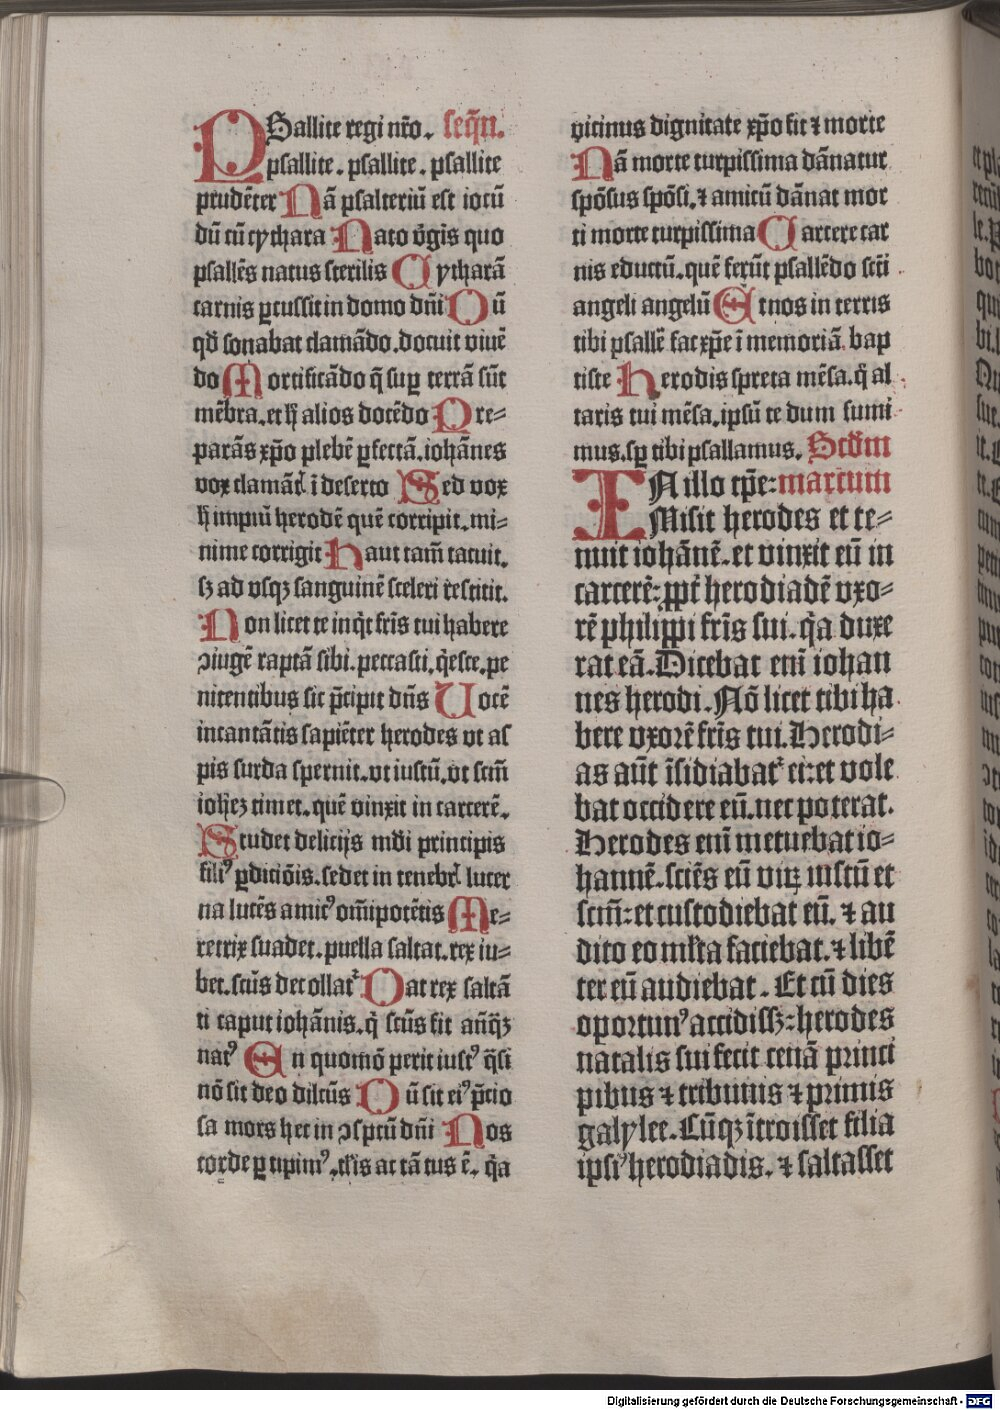 PSallite regi nr̃o. seq̃n.
psallite. psallite. psallite
prudẽter Nã psalteriũ est iocũ
dũ cũ cythara Nato v̾gis quo
psallẽs natus sterilis Cytharã
carnis ꝑcussit in domo dñi Cũ
qd̾ sonabat clamãdo. docuit viuẽ
do Mortificãdo q̃ suꝑ terrã sũt
mẽbra. et h̾ alios docẽdo Pre⸗
parãs xp̃o plebẽ ꝑfectã. iohãnes
vox clamãt̾ ĩ deserto Sed vox
h̾ impiũ herodẽ quẽ corripit. mi⸗
nime corrigit Haut tam̃ tacuit.
sꝫ ad vsqꝫ sanguinẽ sceleri restitit.
Non licet te inq̃t fr̃is tui habere
ↄiugẽ raptã sibi. peccasti. q̃esce. pe
nitentibus sic p̃cipit dñs Uocẽ
incantãtis sapiẽter herodes vt as
pis surda spernit. vt iustũ. vt scm̃
ioh̾eꝫ timet. quẽ vinxit in carcerẽ.
Studet delicijs mũdi principis
filiꝰ ꝑdiciõis. sedet in tenebr̾ lucer
na lucẽs amicꝰ om̃ipotẽtis Me⸗
retrix suadet. puella saltat. rex iu⸗
bet. scũs decollat̾ Dat rex saltã
ti caput iohãnis. q̃ scũs fit añq̃ꝫ
natꝰ En quomõ perit iustꝰ q̃si
nõ sit deo dilc̃us Cũ sit eiꝰ p̃cio
sa mors hec in ↄspc̃tũ dñi Nos
corde ꝑcipimꝰ. th̾is ac tãtus ẽ. q̃a
vicinus dignitate xp̃o fit ⁊ morte
Nã morte turpissima dãnatur
spõsus spõsi. ⁊ amicũ dãnat mor
ti morte turpissima Carcere car
nis eductũ. quẽ ferũt psallẽdo sc̃ti
angeli angelũ Et nos in terris
tibi psallẽ fac xp̃e ĩ memoriã. bap
tiste Herodis spreta mẽsa. q̃ al
taris tui mẽsa. ipsũ te dum sumi
mus. sꝑ tibi psallamus. Scd̾m
IN illo tp̃e: marcum
Misit herodes et te⸗
nuit iohãnẽ. et vinxit eũ in
carcerẽ: ꝓpt̾ herodiadẽ vxo⸗
rẽ philippi fr̃is sui. q̃a duxe
rat eã. Dicebat em̃ iohan
nes herodi. Nõ licet tibi ha
bere vxorẽ fr̃is tui. Herodi⸗
as aũt ĩsidiabat̾ ei: et vole
bat occidere eũ. nec poterat.
Herodes em̃ metuebat io⸗
hannẽ. sciẽs eũ virꝫ iustũ et
scm̃: et custodiebat eũ. ⁊ au
dito eo ml̃ta faciebat. ⁊ libẽ
ter eũ audiebat. Et cũ dies
oportunꝰ accidissꝫ: herodes
natalis sui fecit cenã princi
pibus ⁊ tribunis ⁊ primis
galylee. Cũqꝫ ĩtroisset filia
ipsiꝰ herodiadis. ⁊ saltasset
Digitalisierung gefördert durch die Deutsche Forschungsgemeinschaft - DFG